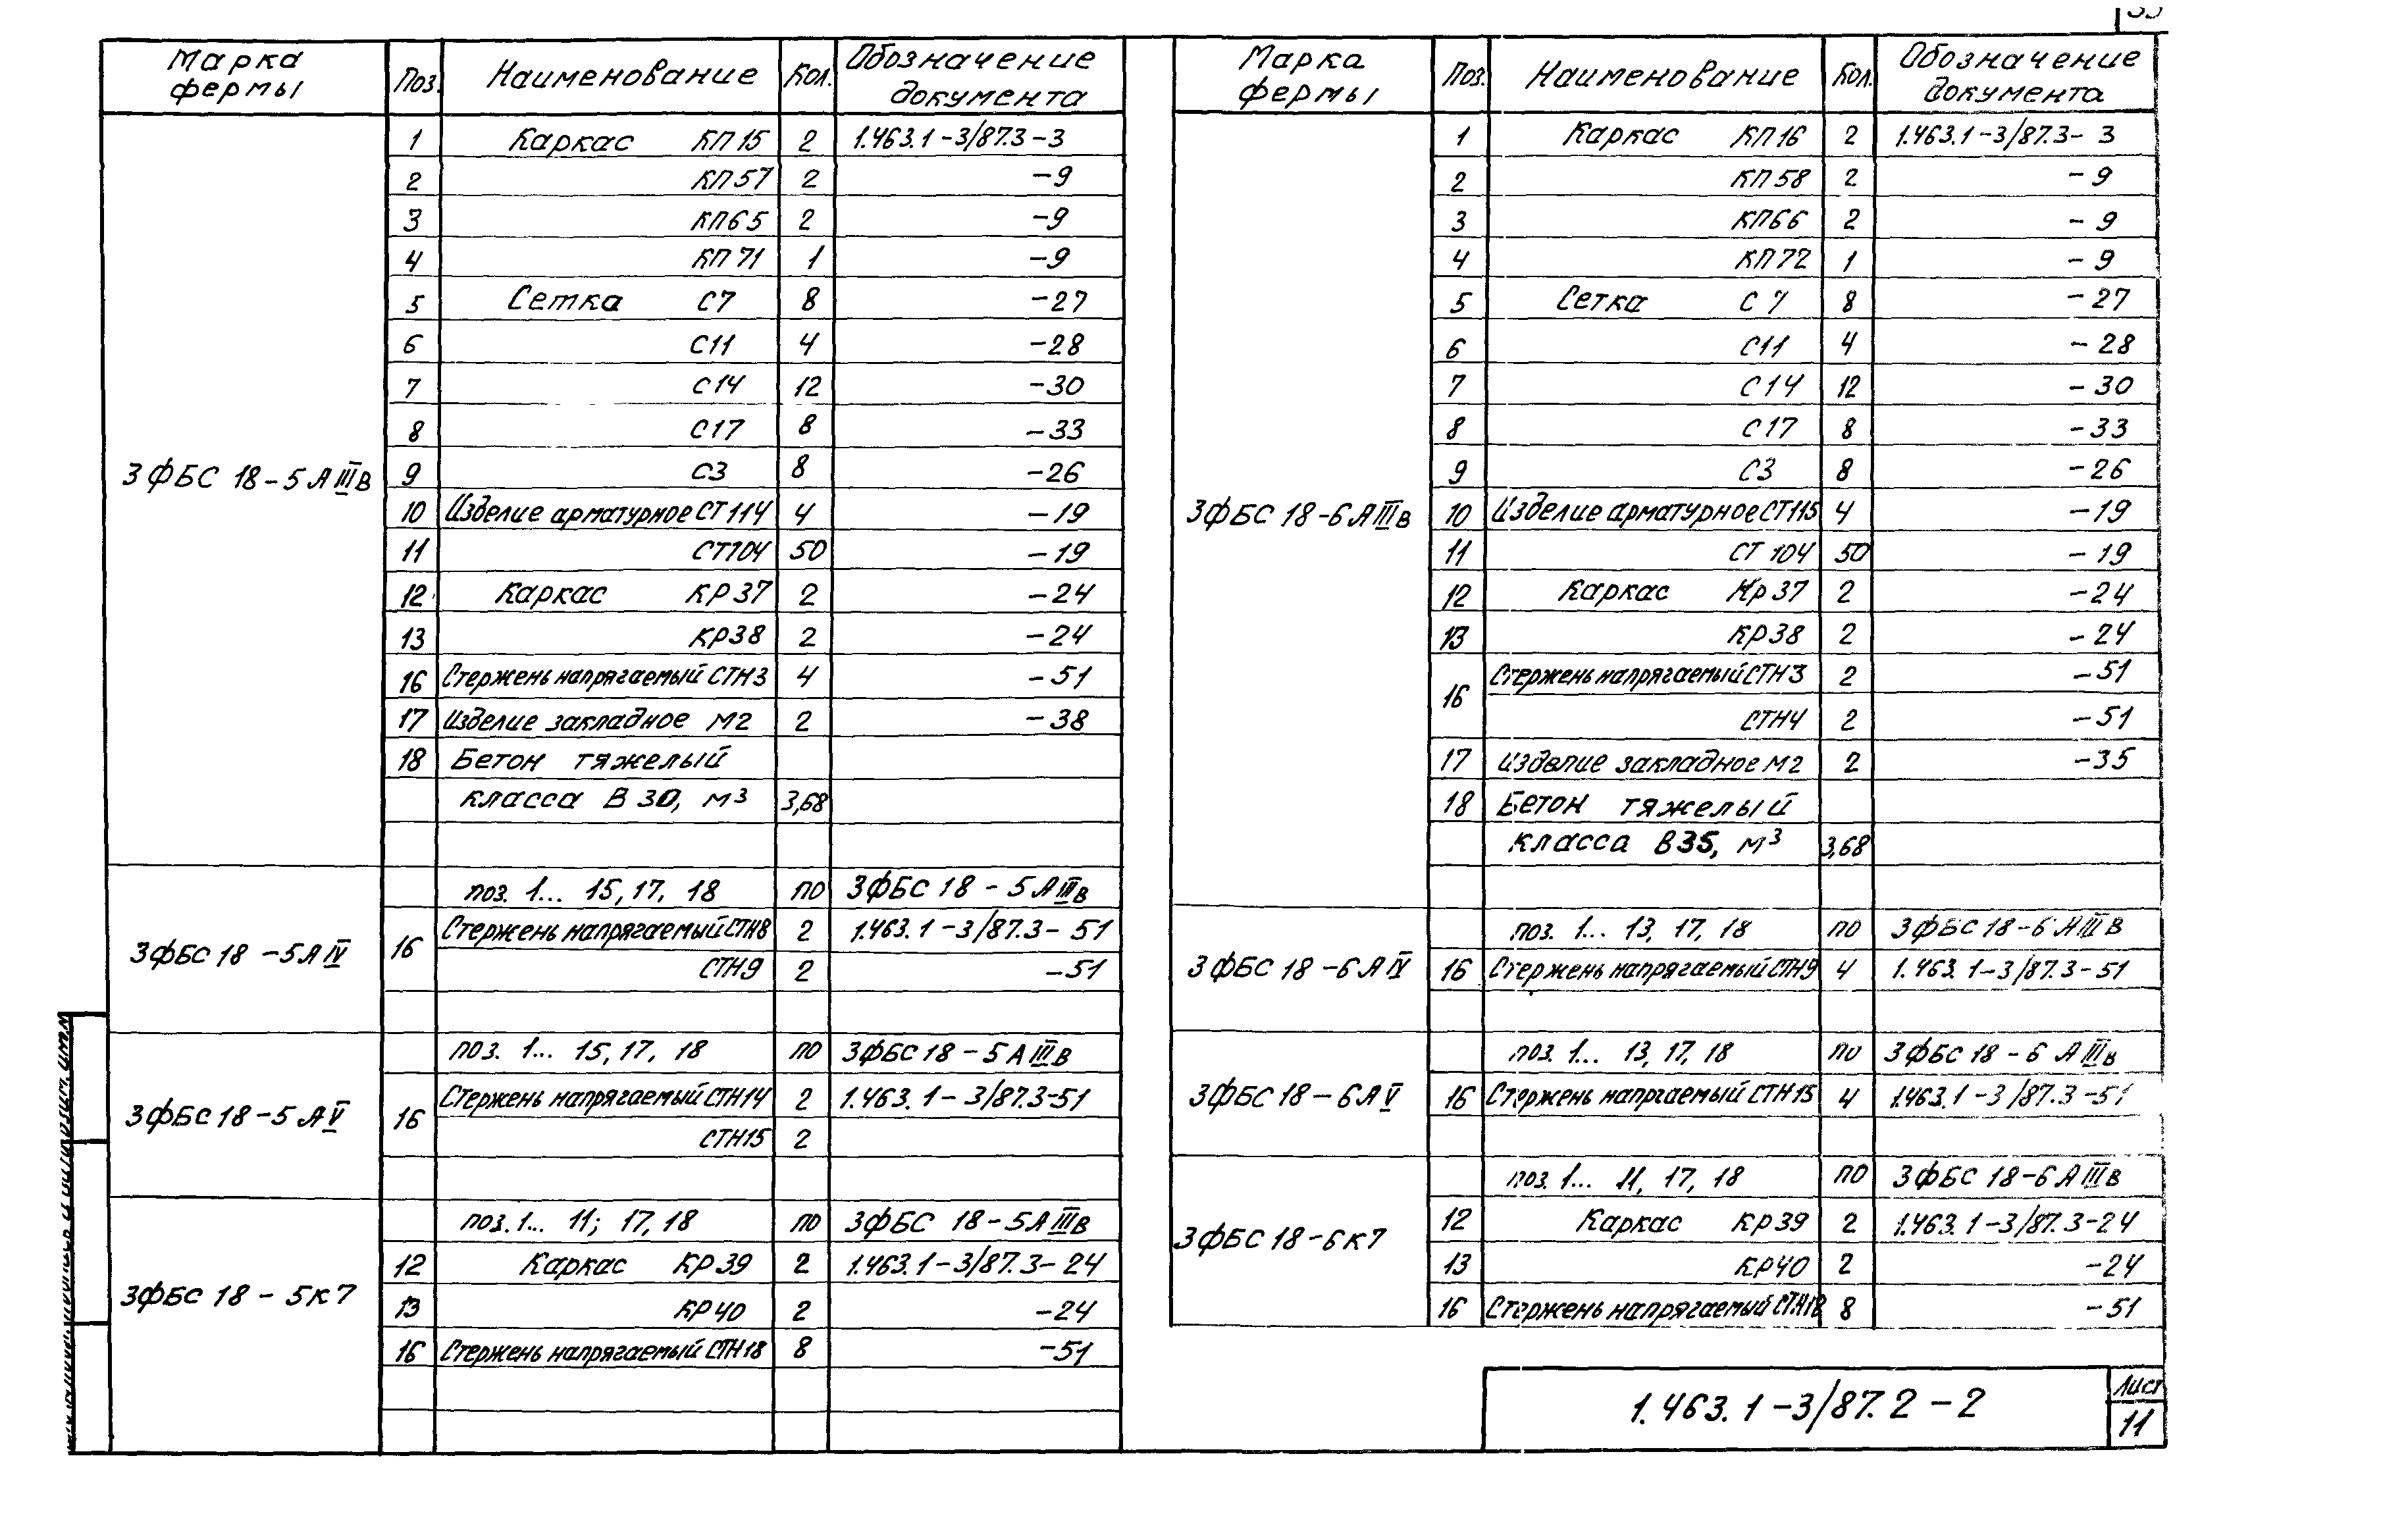 Марка фермы Поз. Наименование Кол. Обозначение документа
1 Каркас КП15 2 1.463.1-3/87.3-3
2 КП57 2 -9
3 КП65 2 -9
4 КП71 1 -9
5 Сетка С7 8 -27
6 С11 4 -28
7 С14 12 -30
8 С17 8 -33
3ФБС 18-5АIIIв 9 С3 8 -26
10 Изделие арматурное СТ114 4 -19
11 СТ104 50 -19
12 Каркас КР37 2 -24
13 КР38 2 -24
16 Стержень напрягаемый СТН3 4 -51
17 Изделие закладное М2 2 -38
18 Бетон тяжелый
класса В30, м³ 3,68
поз. 1... 15,17, 18 по 3ФБС 18-5АIIIв
3ФБС 18-5АIV 16 Стержень напрягаемый СТН8 2 1.463.1-3/87.3-51
СТН9 2 -51
поз. 1... 15,17, 18 по 3ФБС 18-5АIIIв
3ФБС 18-5АV 16 Стержень напрягаемый СТН14 2 1.463.1-3/87.3-51
СТН15 2
поз. 1... 11; 17,18 по 3ФБС 18-5АIIIв
12 Каркас КР39 2 1.463.1-3/87.3-24
3ФБС 18-5К7 13 КР40 2 -24
16 Стержень напрягаемый СТН18 8 -51
Марка фермы Поз. Наименование Кол. Обозначение документа
1 Каркас КП16 2 1.463.1-3/87.3-3
2 КП58 2 -9
3 КП66 2 -9
4 КП72 1 -9
5 Сетка С7 8 -27
6 С11 4 -28
7 С14 12 -30
8 С17 8 -33
9 С3 8 -26
3ФБС 18-6АIIIв 10 Изделие арматурное СТ115 4 -19
11 СТ104 50 -19
12 Каркас Кр37 2 -24
13 КР38 2 -24
16 Стержень напрягаемый СТН3 2 -51
СТН4 2 -51
17 Изделие закладное М2 2 -35
18 Бетон тяжелый
класса В35, м³ 3,68
поз. 1... 13, 17, 18 по 3ФБС 18-6АIIIв
3ФБС 18-6АIV 16 Стержень напрягаемый СТН9 4 1.463.1-3/87.3-51
поз. 1... 13, 17, 18 по 3ФБС 18-6АIIIв
3ФБС 18-6АV 16 Стержень напргаемый СТН15 4 1.463.1-3/87.3-51
поз. 1... 11, 17, 18 по 3ФБС 18-6АIIIв
12 Каркас Кр39 2 1.463.1-3/87.3-24
3ФБС 18-6К7 13 КР40 2 -24
16 Стержень напрягаемый СТН18 8 -51
1.463.1-3/87.2-2
Лист
11